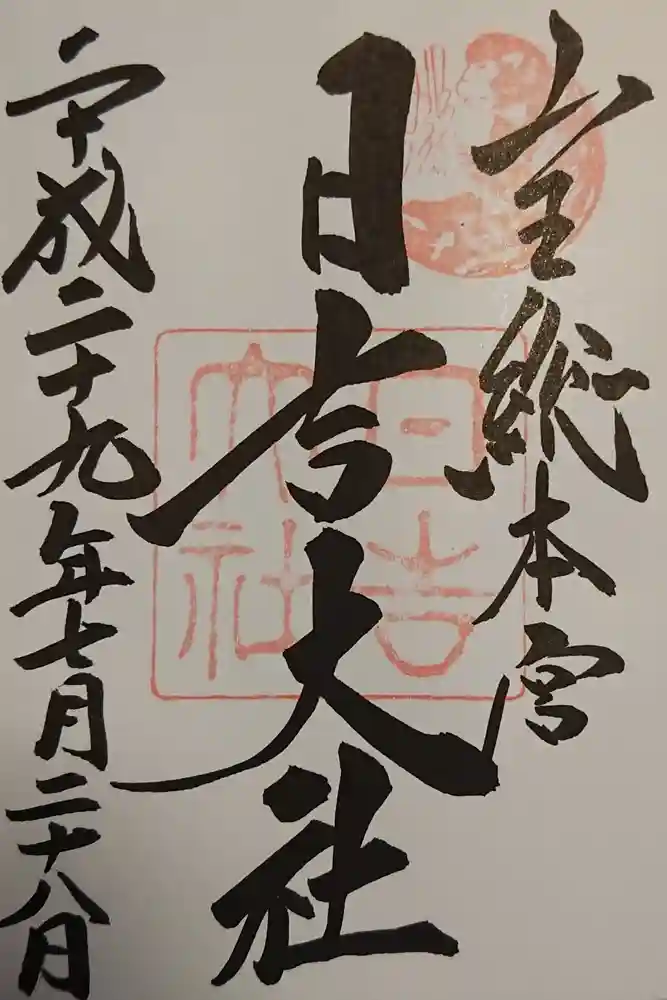 山王総本宮
日吉大社
平成二十九年七月二十八日
日吉
大社